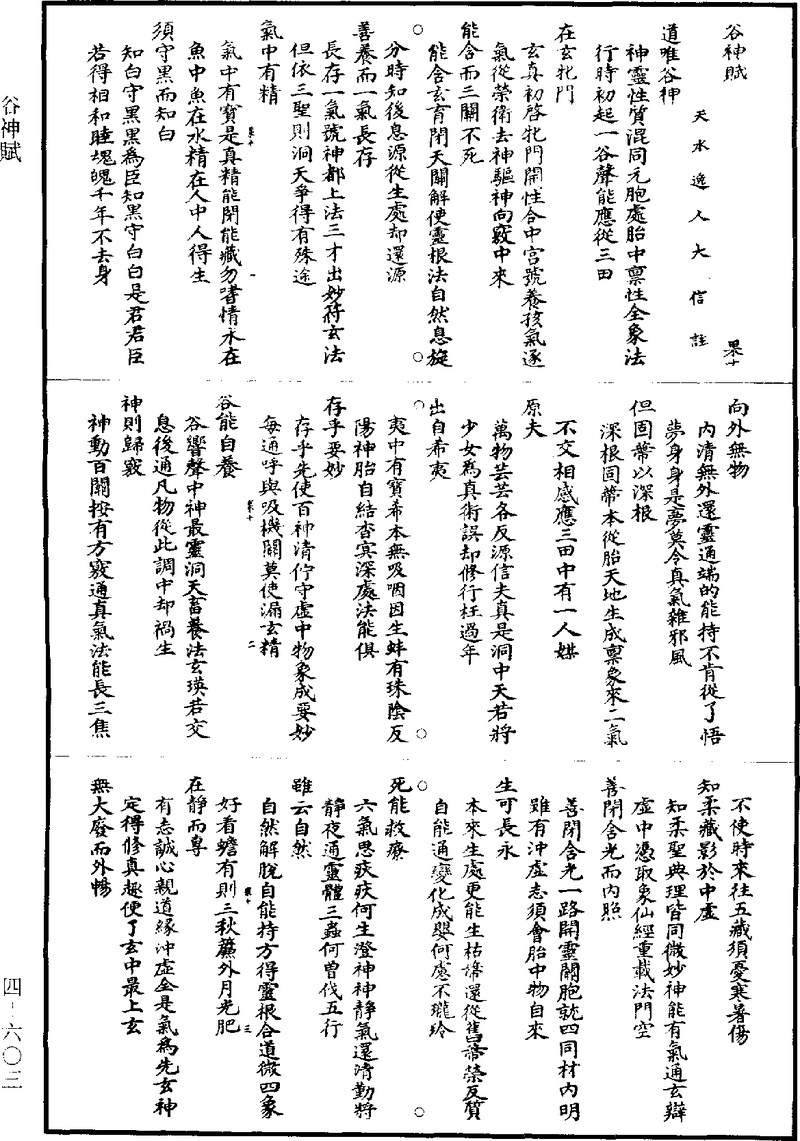 谷神賦
天水逸人大信註 果十
道唯谷神
神靈性質混同元胞處胎中稟性全象法
行時初起一谷聲能應從三田
在玄牝門
玄真初啓牝門開性合中宮號養孩氣逐
氣從榮衛去神驅神向竅中來
能含而三關不死
能含玄育閉天關解使靈根法自然息旋
分時知後息源從生處却還源
善養而一氣長存
長存一氣號神都上法三才出妙符玄法
但依三聖則洞天爭得有殊途
氣中有精
氣中有寶是真精能閉能藏勿嗜情水在
魚中魚在水精在人中人得生
須守黑而知白
知白守黑黑爲臣知黑守白白是君君臣
若得相和睦塊魄千年不去身
向外無物
内清無外還靈通端的能持不肯從了悟
夢身身是夢莫令真氣雜邪風
但固蔕以深根
深根固蔕本從胎天地生成稟象來二氣
不交相感應三田中有一人媒
原夫
萬物芸芸各反源信夫真是洞中天若將
少女爲真術誤却修行枉過年
出自希夷
夷中有寶希本無吸咽因生蚌有珠陰反
陽神胎自結杳冥深處法能俱
存乎要妙
存乎先使百神清佇守虛中物象成要妙
每通呼與吸機關莫使漏玄精
谷能自養
谷響聲中神最靈洞天畜養法玄瑛若交
息後通凡物從此調中却禍生
神則歸竅
神動百關按有方竅通真氣法能長三焦
不使時來往五藏須憂寒暑傷
知柔藏影於中虛
知柔聖典理皆同微妙神能有氣通玄辯
虛中憑取象仙經重載法門空
善閉含光而内照
善閉含光一路開靈關胞就四同材内明
雖有沖虛志須會胎中物自來
生可長永
本來生處更能生枯蔕還從舊蔕榮反質
自能通變化成嬰何慮不瓏玲
死能救療
六氣思疾疾何生澄神神靜氣還清勤將
靜夜通靈體三蟲何曽伐五行
雖云自然
自然解脫自能持方得靈根合道微四象
好看蟾有則三秋簾外月光肥
在靜而專
有志誠心親道緣沖虛全是氣爲先玄神
定得修真趣便了玄中最上玄
無大廢而外暢
谷神賦
四-六〇三